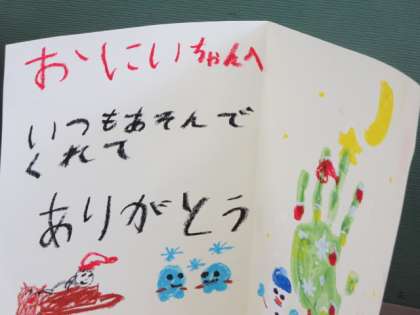 おにいちゃんへ
いつもあそんで
くれて
ありがとう